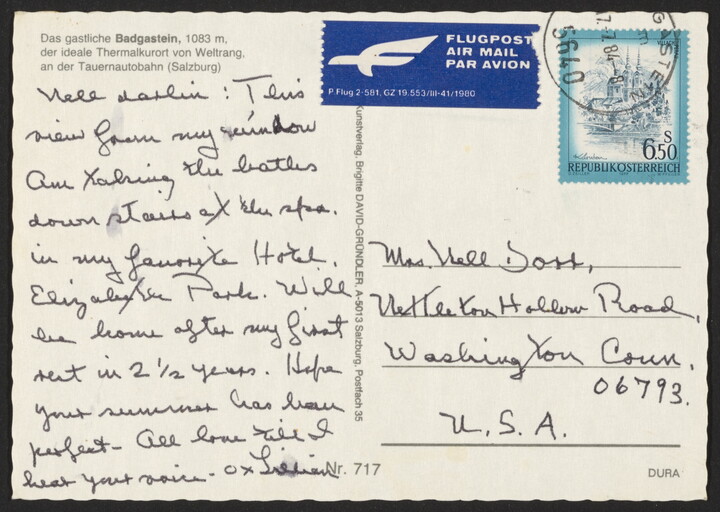 Das gastliche Badgastein, 1083 m,
der ideale Thermalkurort von Weltrang,
an der Tauernautobahn (Salzburg)
Nell darlin: This
view from my window
Am taking the baths
down stairs at the spa.
in my favorite Hotel.
Elizabethe Park. Will
be home after my first
rest in 2 1/2 years. Hope
your summer has been
perfect - All love till I
hear your voice - ox Lillian
FLUGPOST
AIR MAIL
PAR AVION
P.Flug 2-581, GZ 19.553/III-41/1980
Kunstverlag, Brigitte DAVID-GRÜNDLER, A-5013 Salzburg, Postfach 35
5640
84-8
S
6.50
REPUBLIK ÖSTERREICH
Mrs. Nell Dorr,
Nettleton Hollow Road,
Washington Conn.
06793.
U.S.A.
Nr. 717
DURA